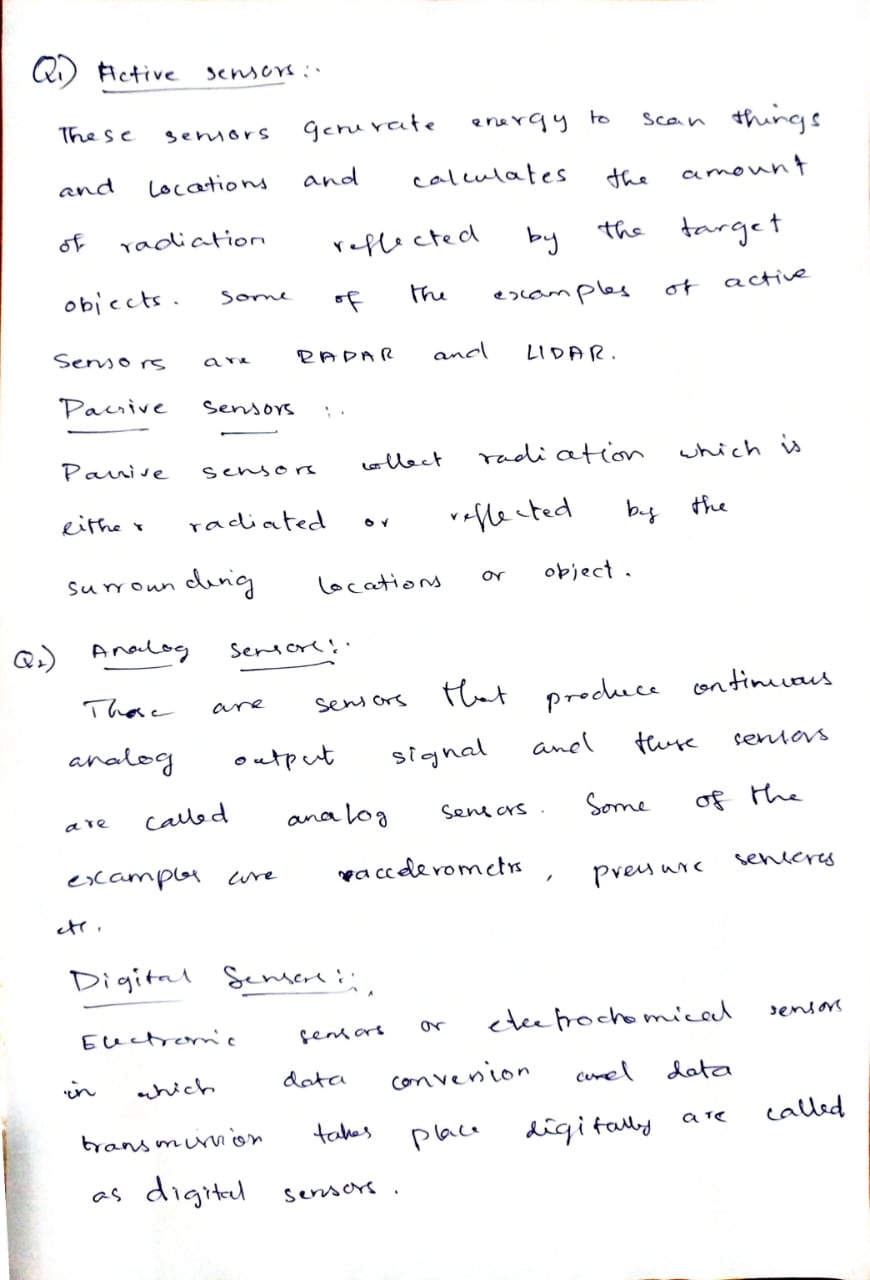 Q1) Active sensors:.
These sensors generate energy to scan things
and locations and calculates the amount
of radiation reflected by the target
objects. some of the examples of active
Sensors are RADAR and LIDAR.
Passive sensors :.
Passive sensors collect radiation which is
either radiated or reflected by the
surrounding locations or object.
Q2) Analog sensors:.
These are sensors that produce continuous
analog output signal and these sensors
are called analog sensors. Some of the
examples are accelerometrs, pressure sensores
etc.
Digital Sensors:.
Electronic sensors or electrochemical sensors
in which data conversion and data
transmission takes place digitally are called
as digital sensors.